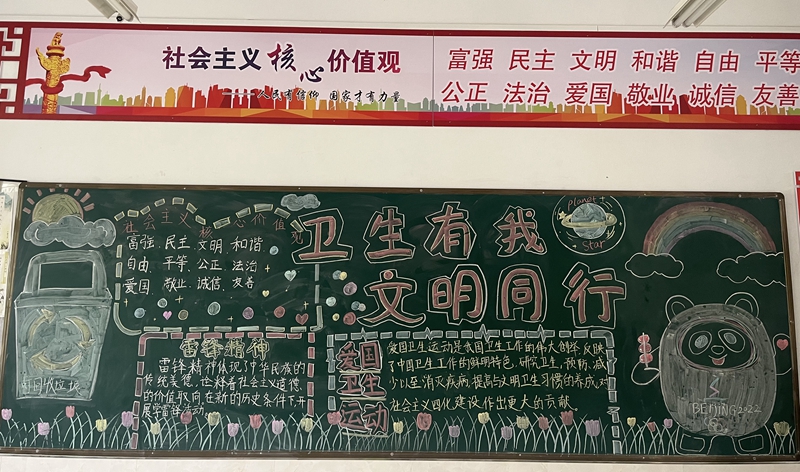 社会主义核心价值观
人民有信仰 国家才有力量
富强 民主 文明 和谐 自由 平等
公正 法治 爱国 敬业 诚信 友善
社会主义核心价值观
富强、民主、文明、和谐
自由、平等、公正、法治
爱国、敬业、诚信、友善
卫生有我
文明同行
Planet
Star
可回收垃圾
雷锋精神
雷锋精神体现了中华民族的
传统美德,诠释着社会主义道德
的价值取向,在新的历史条件下开
展学雷锋活动
爱国
卫生
运动
爱国卫生运动是我国卫生工作的伟大创举,反映
了中国卫生工作的鲜明特色,研究卫生,预防、减
少以至消灭疾病,提高与文明卫生习惯的养成,对
社会主义四化建设作出更大的贡献。
BEIJING 2022